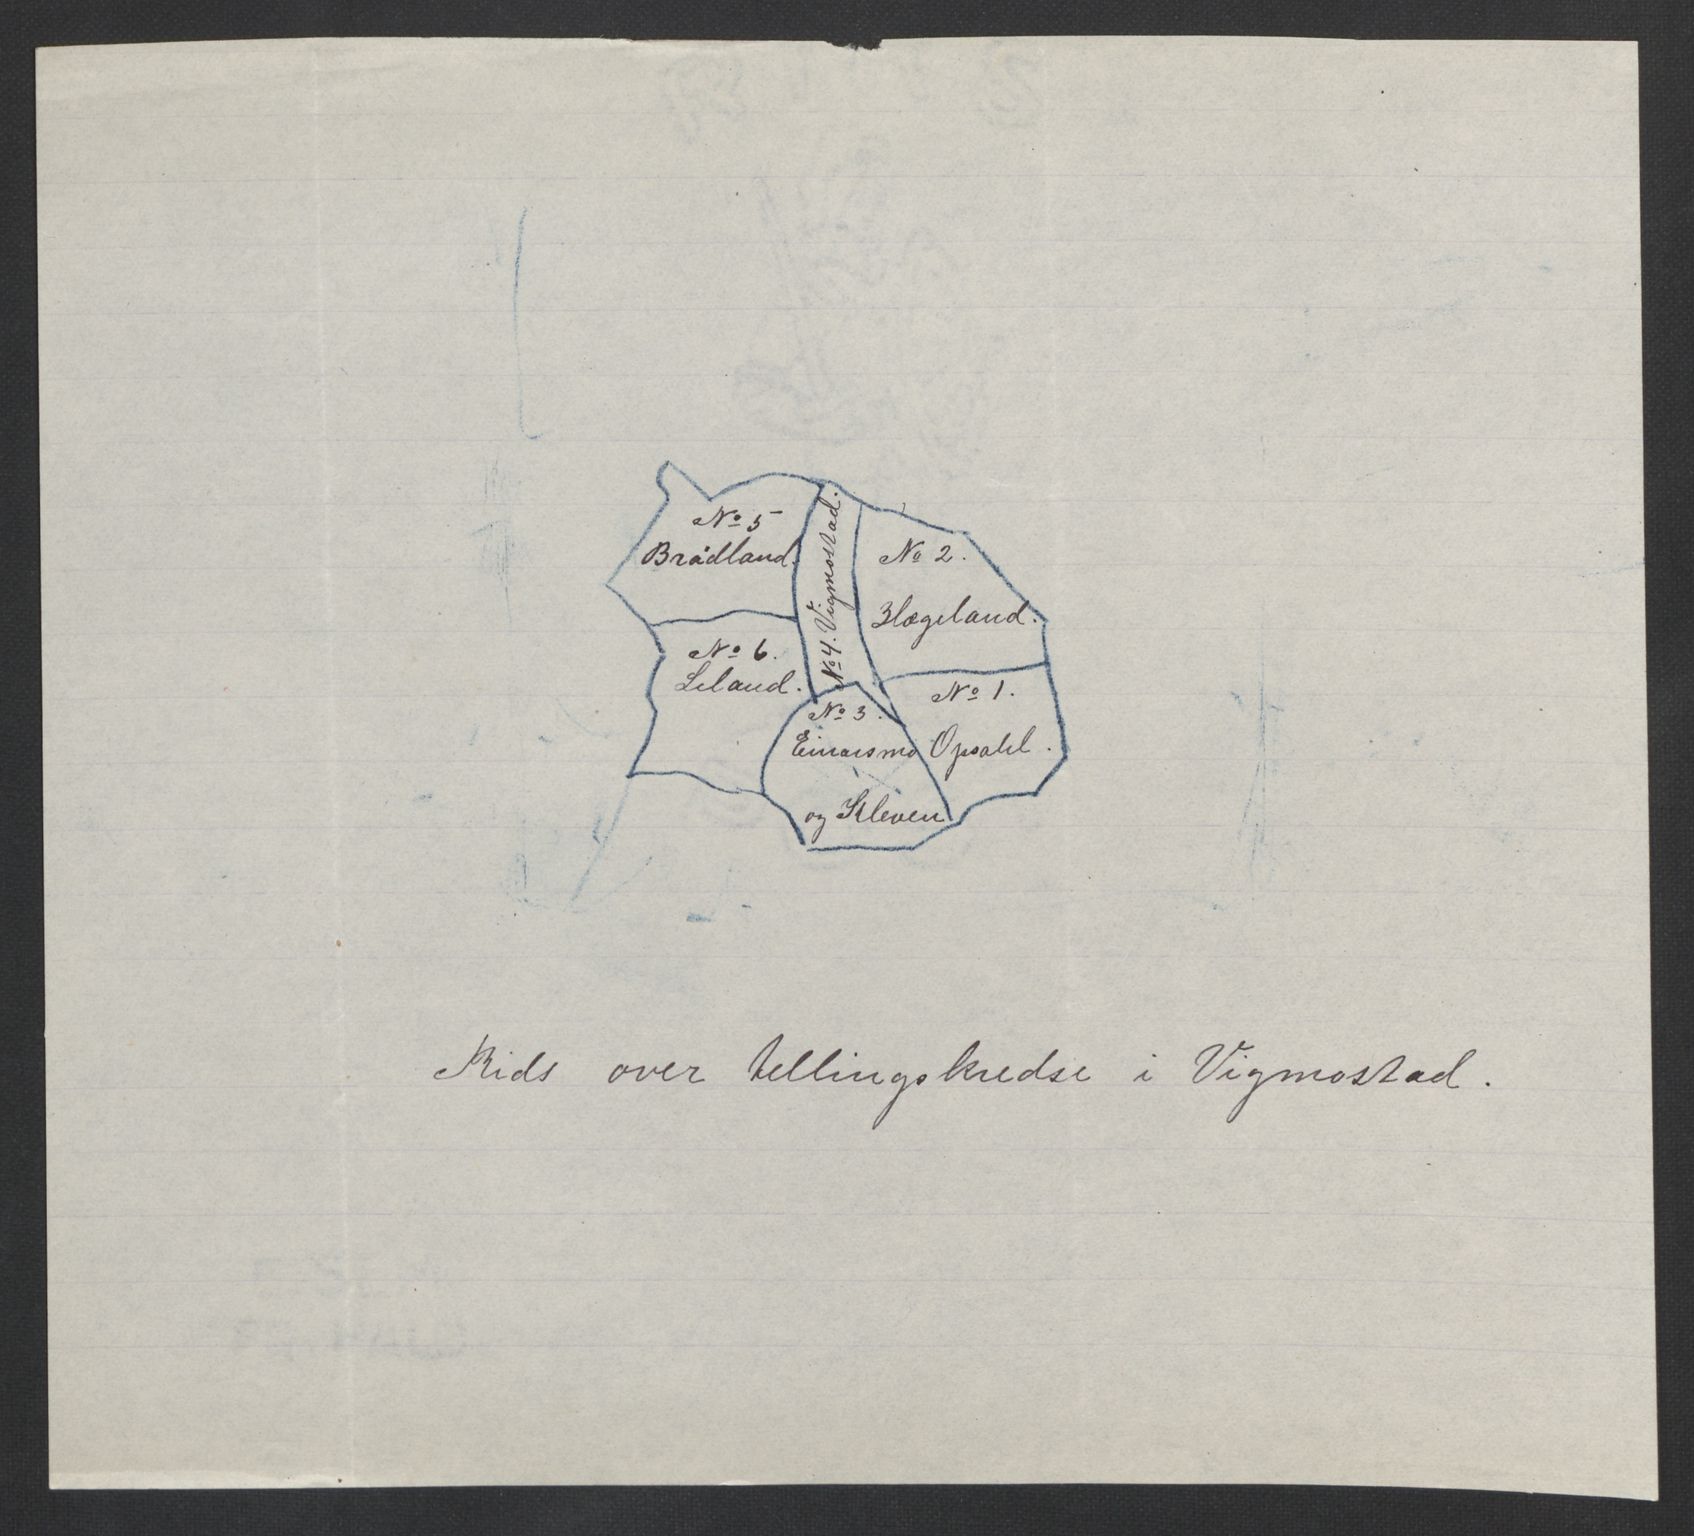 No 5
Brådland.
No 4. Vigmostad.
No 2.
Hægeland.
No 6.
Leland.
No 3.
Einarsmo
og Kleven
No 1.
Opsahl.
Rids over tellingskredse i Vigmostad.